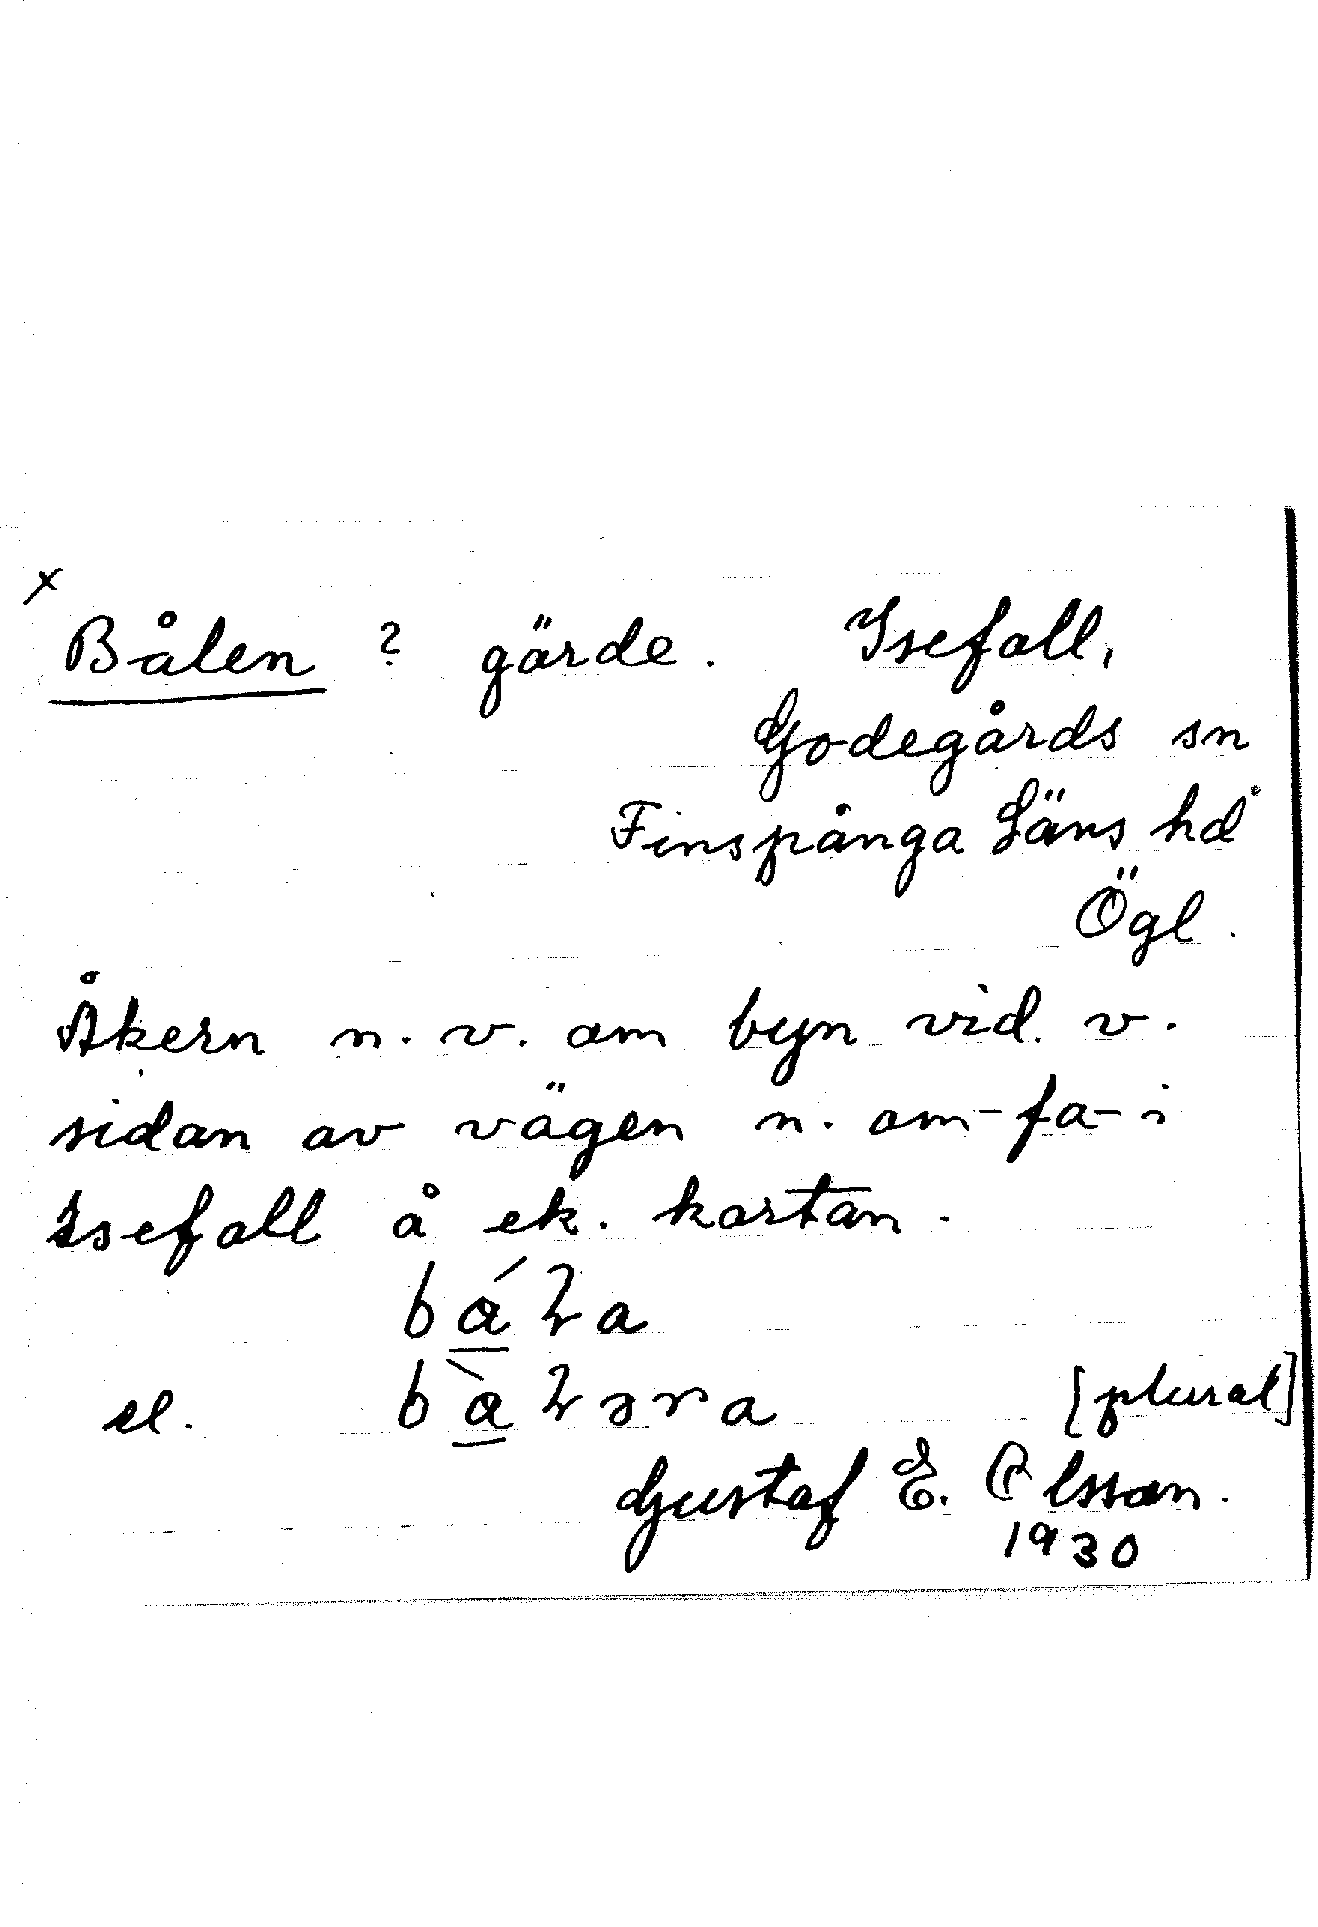 x
Bålen ? gärde. Isefall,
Godegårds sn
Finspånga Läns hd
Ögl.
Åkern n. v. om byn vid v.
sidan av vägen n. om -fa- i
Isefall å ek. kartan.
el.
[plural]
Gustaf E. Olsson.
1930